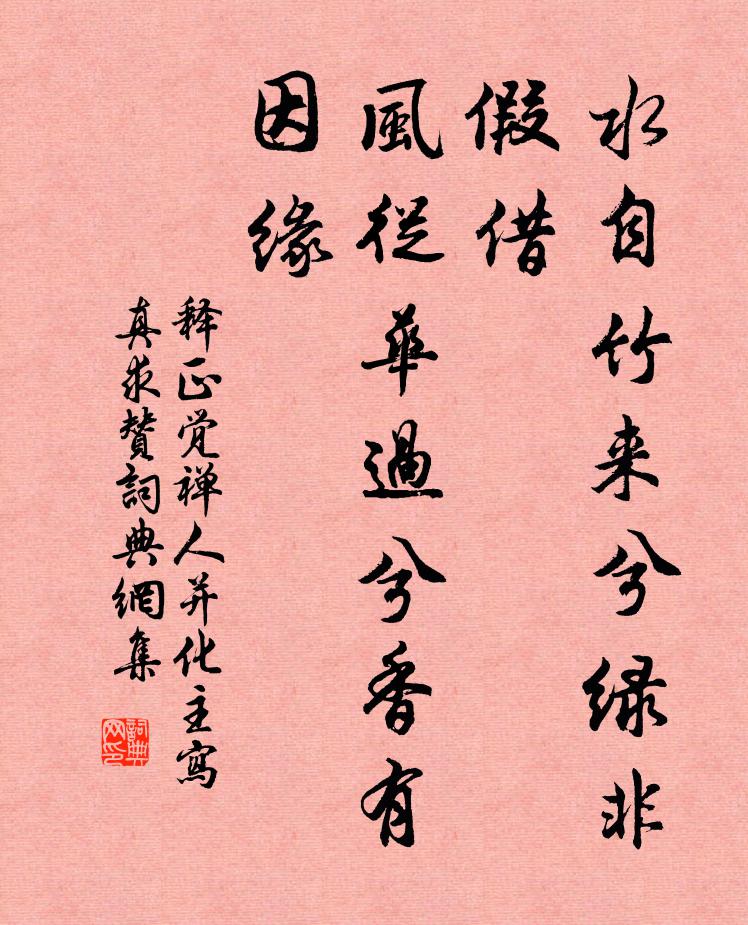 水自竹来兮绿非
假借
風從華過兮香有
因緣
释正觉禅人并化主寫
真求賛詞典網集
詞典
网印